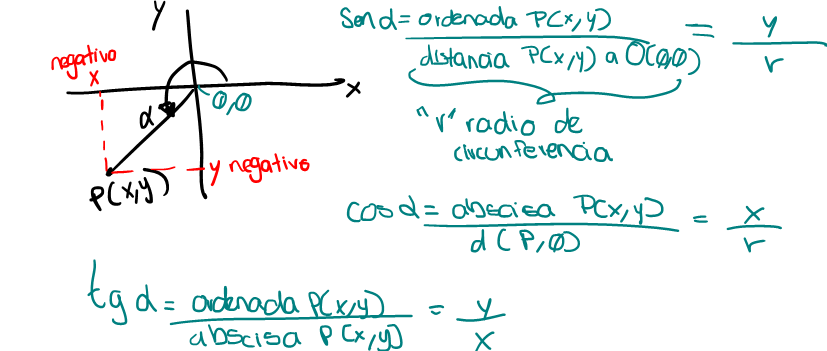 y
negativo
x
x
0,0
α
y negativo
P(x,y)
Sen α = ordenada P(x,y) / distancia P(x,y) a O(0,0) = y / r
"r" radio de
circunferencia
cos α = abscisa P(x,y) / d(P,0) = x / r
tg α = ordenada P(x,y) / abscisa P(x,y) = y / x